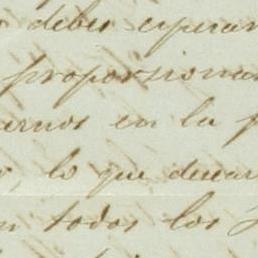 debes esperar
proporsionar
ernos en la
lo que desear
en todos los